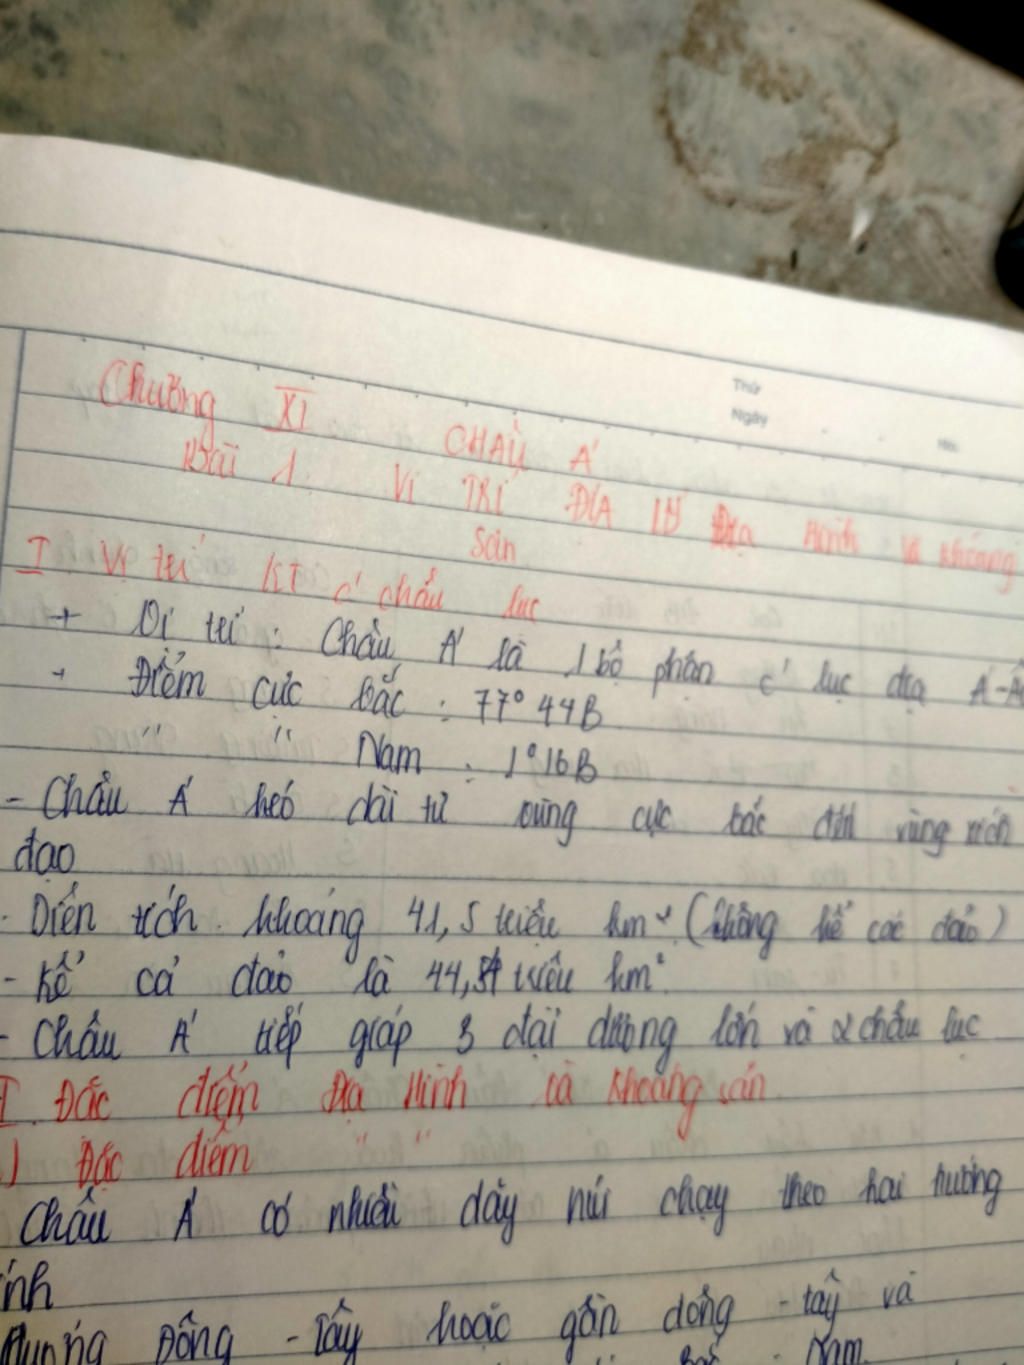 Thứ
Ngày
Chương XI CHÂU Á
Bài 1. Vị TRÍ ĐỊA LÝ Địa Hình và Khoáng
Sản
I Vị trí KT c' châu lục
+ Vị trí : Châu Á là 1 bộ phận c' lục địa Á-Âu
+ Điểm cực Bắc : 77° 44B
" " Nam : 1°16B
- Châu Á kéo dài từ vùng cực bắc đến vùng xích
đạo
- Diện tích khoảng 41,5 triệu km² (không kể các đảo)
- Kể cả đảo là 44,4 triệu km²
- Châu Á tiếp giáp 3 đại dương lớn và 2 châu lục
I. Đặc điểm Địa Hình và Khoáng sản
) Đặc điểm " "
Châu Á có nhiều dãy núi chạy theo hai hướng
ính
Hướng Đông - Tây hoặc gần đông - tây và
Nam